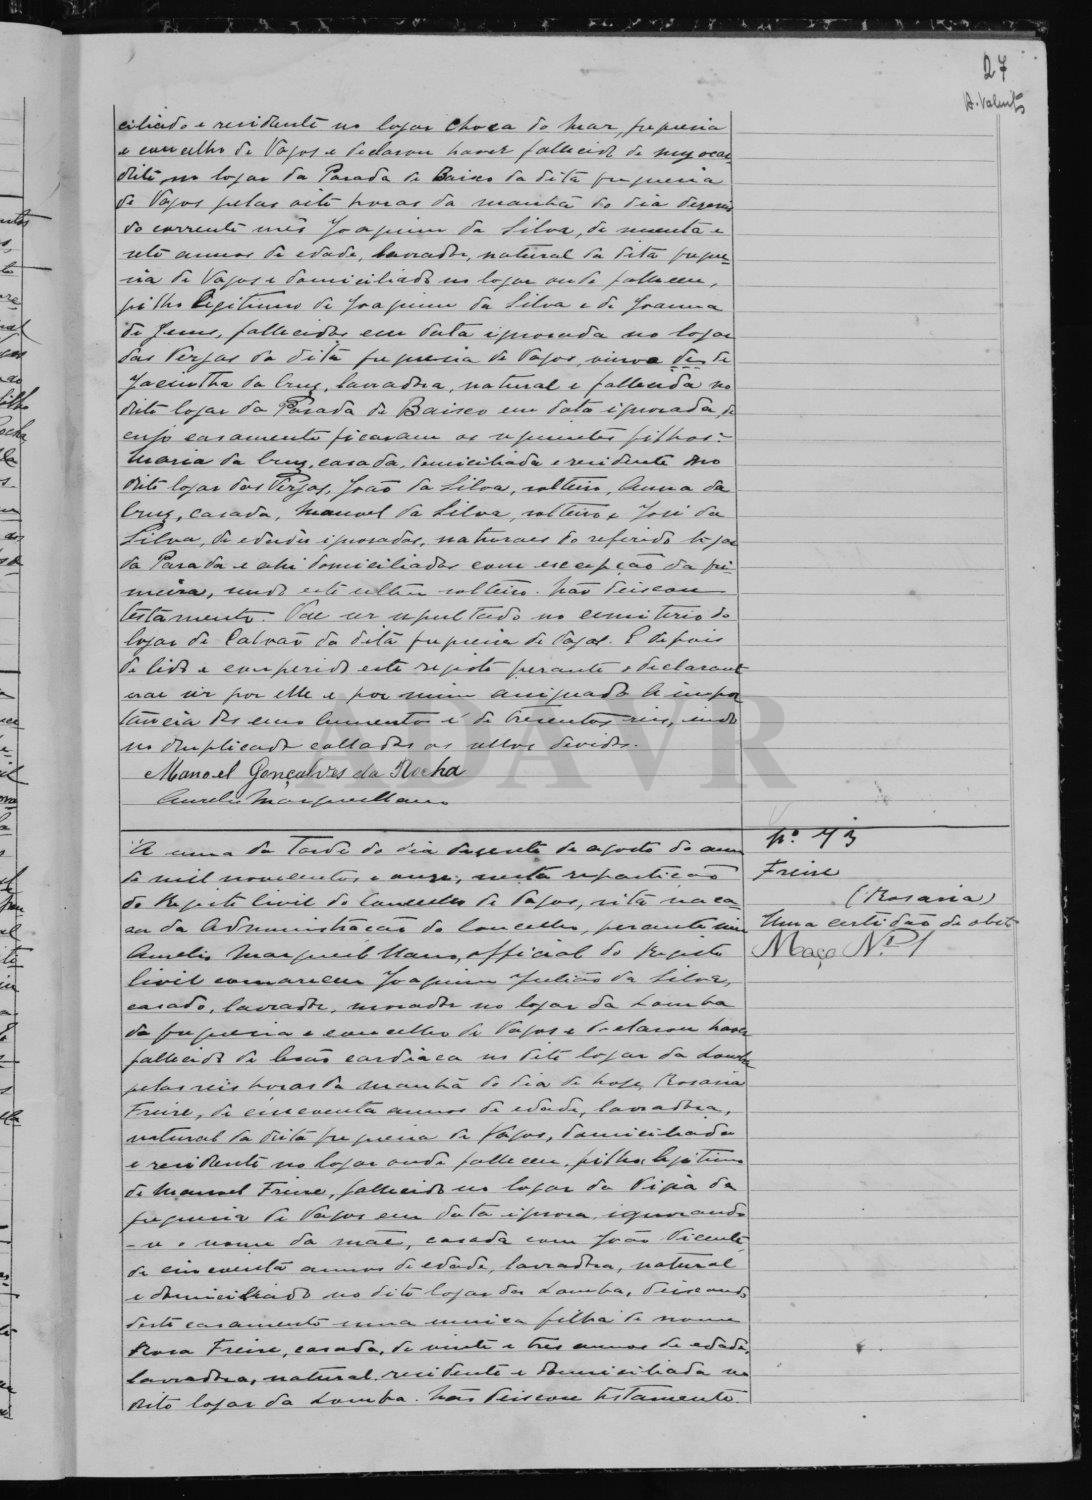 27
A. Valente
ciliado e residente no logar Choca do Mar, freguesia
e concelho de Vagos e declarou haver fallecido de myocar-
dite, no logar da Parada de Baixo da dita freguesia
de Vagos pelas oito horas da manhã do dia desaseis
do corrente mês Joaquim da Silva, de noventa e
sete annos de edade, lavrador, natural da dita fregue-
sia de Vagos e domiciliado no logar onde falleceu,
filho legitimo de Joaquim da Silva e de Joanna
de Jesus, fallecidos em data ignorada no logar
das Vergas da dita freguesia de Vagos, viuvo de
Jacintha da Cruz, lavradora, natural e fallecida no
dito logar da Parada de Baixo em data ignorada, de
cujo casamento ficaram os seguintes filhos:-
Maria da Cruz, casada, domiciliada e residente no
dito logar das Vergas, João da Silva, solteiro, Anna da
Cruz, casada, Manoel da Silva, solteiro e José da
Silva, de edades ignoradas, naturaes do referido logar
da Parada e ahi domiciliados com excepção da pri-
meira, sendo este ultimo solteiro. Não deixou
testamento. Vae ser sepultado no cemiterio do
logar de Calvão da dita freguesia de Vagos. E depois
de lido e conferido este registo perante o declarante
vae ser por elle e por mim assignado. A impor
tancia dos emolumentos é de tresentos reis, sendo
no duplicado collados os sellos devidos.
Manoel Gonçalves da Rocha
Aurelio Marques Mano
ADAVR
Á uma da tarde do dia desesete de agosto do anno
de mil novecentos e onze, nesta repartição
do Registo Civil do Concelho de Vagos, sita na ca-
sa da Administração do Concelho, perante mim
Aurelio Marques Mano, official do Registo
Civil compareceu Joaquim Julião da Silva,
casado, lavrador, morador no logar da Lomba
da freguesia e concelho de Vagos e declarou haver
fallecido de lesão cardiaca no dito logar da Lomba
pelas seis horas da manhã do dia de hoje, Rosaria
Freire, de cincoenta annos de edade, lavradora,
natural da dita freguesia de Vagos, domiciliada
e residente no logar onde falleceu, filha legitima
de Manoel Freire, fallecido no logar da Vigia da
freguesia de Vagos em data ignora, ignorando
-se o nome da mãe, casada com João Vicente,
de cincoenta annos de edade, lavrador, natural
e domiciliado no dito logar da Lomba, deixando
deste casamento uma unica filha de nome
Rosa Freire, casada, de vinte e tres annos de edade,
lavradora, natural, residente e domiciliada no
dito logar da Lomba. Não deixou testamento.
Nº. 73
Freire
(Rosaria)
Uma certidão de obito
Maço Nº 1